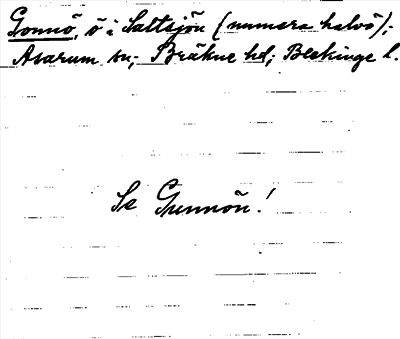 Gonnö, ö i Saltsjön (numera halvö),
Asarum sn, Bräkne hd, Blekinge l.
Se Gunnön!